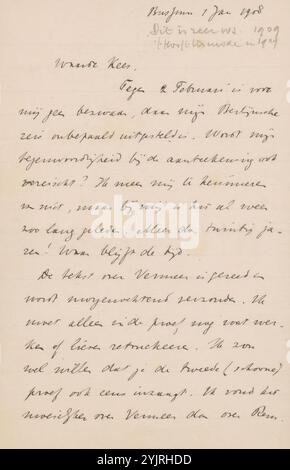 Bussum 1 Jan 1908
Dit is zeer ws. 1909
Waarde Kees,
Tegen 2 Februari is voor
mij geen bezwaar, daar mijn Berlijnsche
reis onbepaald uitgesteld is. Wordt mijn
tegenwoordigheid bij de aanteekening ook
vereischt? Ik meen mij te herinneren
van niet, maar bij mij is het al weer
zoo lang geleden, alleen dan twintig ja-
ren! Waar blijft de tijd.
De tekst over Vermeer is gereed en
wordt morgenochtend verzonden. Ik
moet alleen in de proef nog wat wer-
ken of liever retoucheeren. Ik zou
wel willen dat je de tweede (schoone)
proef ook eens inzaagt. Ik vond het
moeilijker over Vermeer dan over Rem.
alamy
Image ID: 2YJRHDD
www.alamy.com